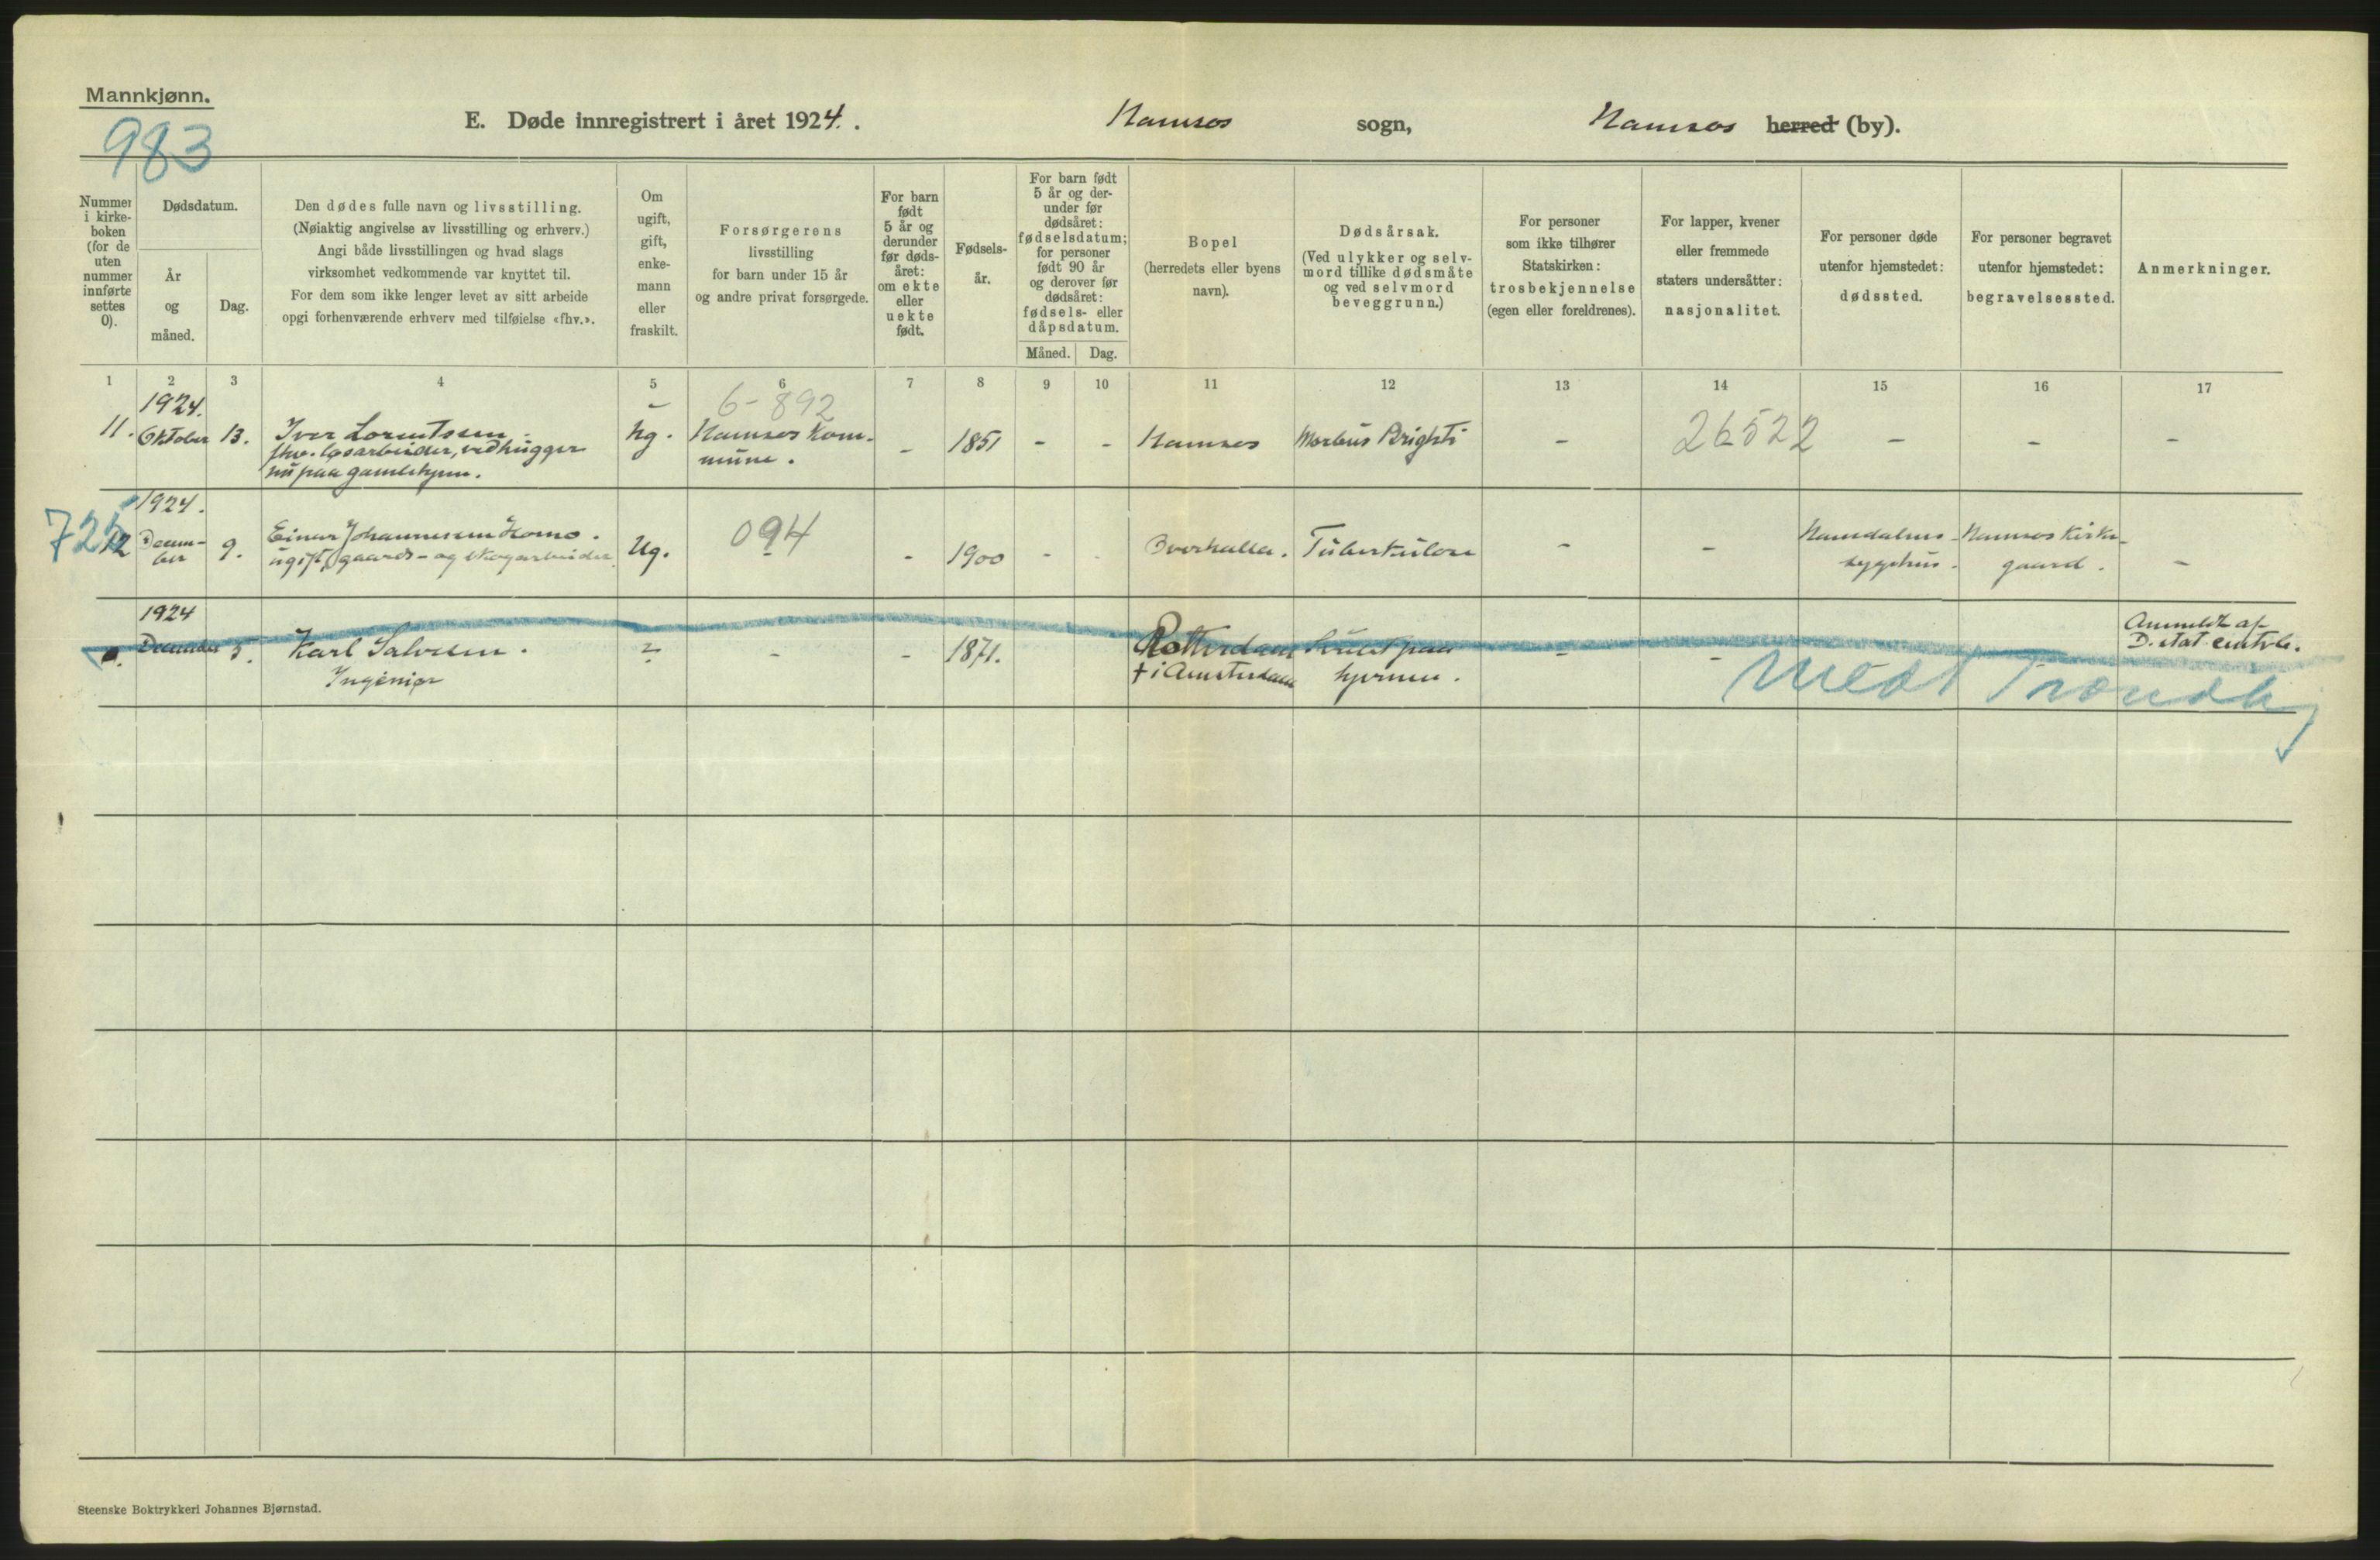 Mannkjønn.
983
E. Døde innregistrert i året 1924. Namsos sogn, Namsos herred (by).
Nummer i kirkeboken (for de uten nummer innførte settes 0).
Dødsdatum.
År og måned.
Dag.
Den dødes fulle navn og livsstilling.
(Nøiaktig angivelse av livsstilling og erhverv.)
Angi både livsstillingen og hvad slags
virksomhet vedkommende var knyttet til.
For dem som ikke lenger levet av sitt arbeide
opgi forhenværende erhverv med tilføielse «fhv.».
Om
ugift,
gift,
enke-
mann
eller
fraskilt.
Forsørgerens
livsstilling
for barn under 15 år
og andre privat forsørgede.
For barn
født
5 år og
derunder
før døds-
året:
om ekte
eller
uekte
født.
Fødsels-
år.
For barn født
5 år og der-
under før
dødsåret:
fødselsdatum;
for personer
født 90 år
og derover før
dødsåret:
fødsels- eller
dåpsdatum.
Måned.
Dag.
Bopel
(herredets eller byens
navn).
Dødsårsak.
(Ved ulykker og selv-
mord tillike dødsmåte
og ved selvmord
beveggrunn.)
For personer
som ikke tilhører
Statskirken:
trosbekjennelse
(egen eller foreldrenes).
For lapper, kvener
eller fremmede
staters undersåtter:
nasjonalitet.
For personer døde
utenfor hjemstedet:
dødssted.
For personer begravet
utenfor hjemstedet:
begravelsessted.
Anmerkninger.
1 2 3 4 5 6 7 8 9 10 11 12 13 14 15 16 17
1924.
11. Oktober 13.
Iver Lorentsen.
fhv. løsarbeider, vedhugger
nu paa gamlehjem.
Ug.
6-892
Namsos Kom-
mune.
- 1851 - - Namsos Morbus Brighti - 26522 - - -
1924.
725 12 Decem-
ber 9.
Einar Johannesen Homo.
ugift, gaards- og skogarbeider.
Ug. 094 - 1900 - - Overhalla. Tuberkulose - -
Namdalens
sygehus.
Namsos Kirke-
gaard.
-
1924
0. December 5.
Karl Salvesen.
Ingeniør
? - - 1871.
Rotterdam
† i Amsterdam
paa
hjernen.
- -
Anmeldt af
D. stat. centrb.
Medt Trondhj
Steenske Boktrykkeri Johannes Bjørnstad.